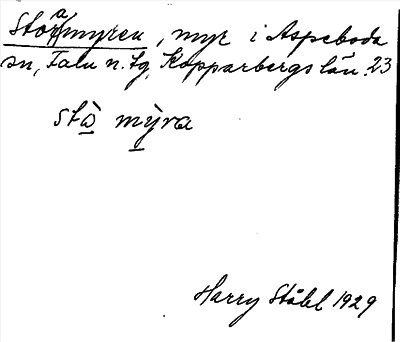 Stormyren, myr i Aspeboda
sn, Falu n. tg, Kopparbergs län. 23
stà mỳra
Harry Ståhl 1929